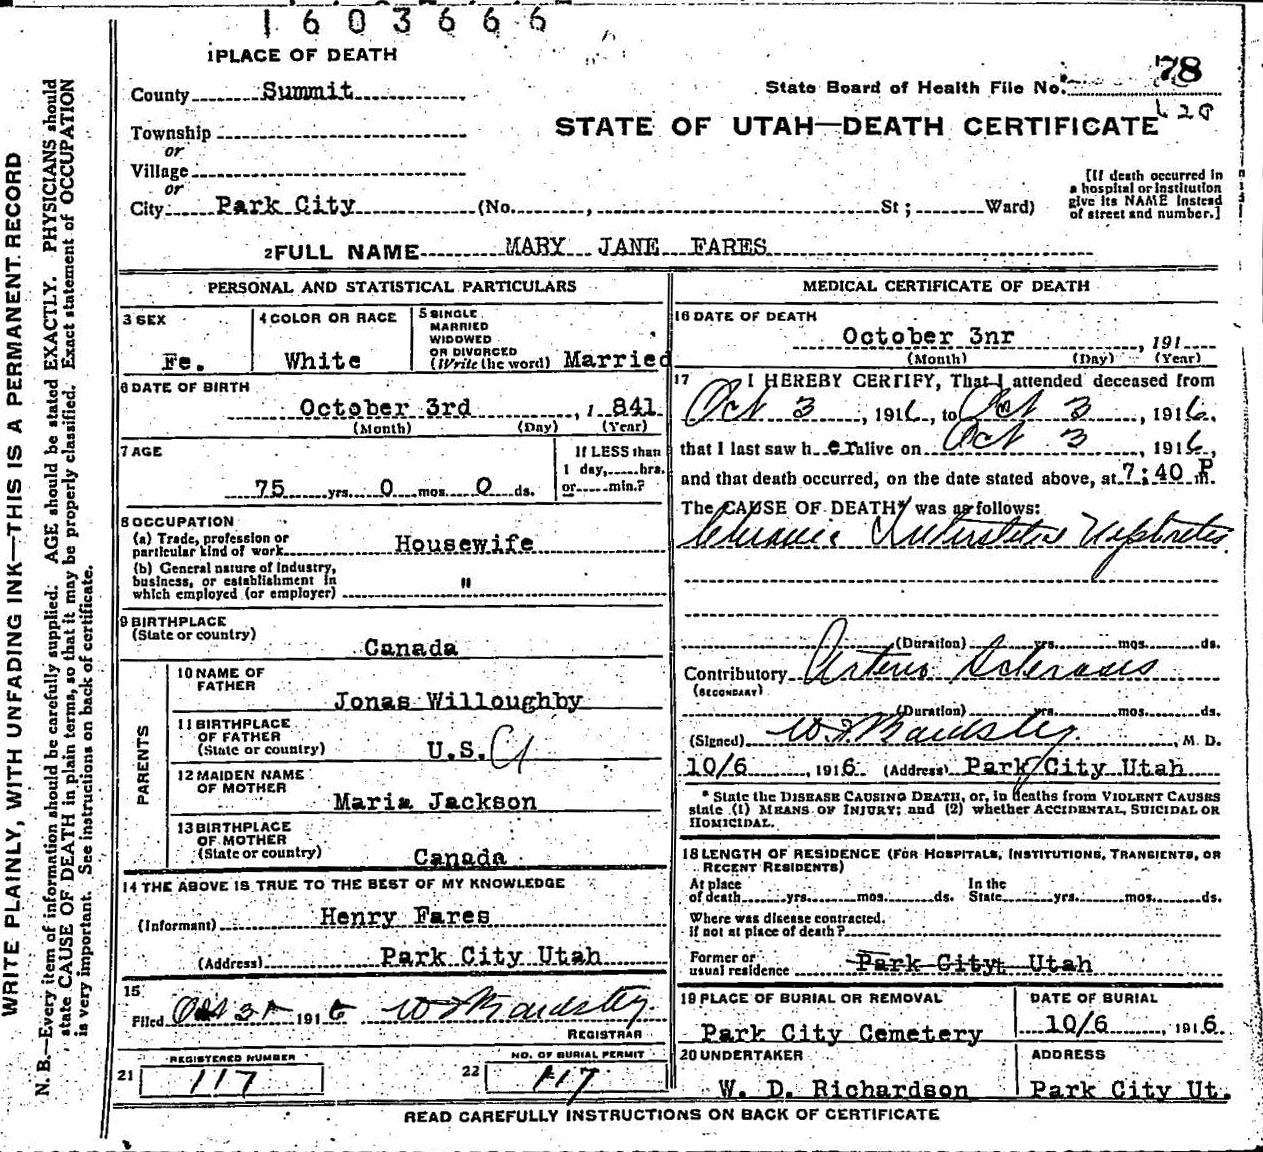 1603666
1 PLACE OF DEATH
County Summit
State Board of Health File No. 78
Township
or
STATE OF UTAH—DEATH CERTIFICATE
Village
or
City Park City (No. , St; Ward)
[If death occurred in
a hospital or institution
give its NAME instead
of street and number.]
2 FULL NAME MARY JANE FARES
PERSONAL AND STATISTICAL PARTICULARS
3 SEX
Fe.
4 COLOR OR RACE
White
5 SINGLE
MARRIED
WIDOWED
OR DIVORCED
(Write the word) Married
6 DATE OF BIRTH
October 3rd , 1 841
(Month) (Day) (Year)
7 AGE
75 yrs. 0 mos. 0 ds.
If LESS than
1 day, hrs.
or min.?
8 OCCUPATION
(a) Trade, profession or
particular kind of work Housewife
(b) General nature of industry,
business, or establishment in
which employed (or employer) "
9 BIRTHPLACE
(State or country)
Canada
PARENTS
10 NAME OF
FATHER
Jonas Willoughby
11 BIRTHPLACE
OF FATHER
(State or country) U.S.A
12 MAIDEN NAME
OF MOTHER
Maria Jackson
13 BIRTHPLACE
OF MOTHER
(State or country) Canada
14 THE ABOVE IS TRUE TO THE BEST OF MY KNOWLEDGE
(Informant) Henry Fares
(Address) Park City Utah
15
Filed Oct 31 1916
REGISTRAR
REGISTERED NUMBER
21 117
NO. OF BURIAL PERMIT
22 117
MEDICAL CERTIFICATE OF DEATH
16 DATE OF DEATH
October 3nr , 191
(Month) (Day) (Year)
17 I HEREBY CERTIFY, That I attended deceased from
Oct 3 , 1916, to Oct 3 , 1916,
that I last saw h er alive on Oct 3 , 1916,
and that death occurred, on the date stated above, at 7:40 P m.
The CAUSE OF DEATH* was as follows:
Chronic Interstitial Nephritis
(Duration) yrs. mos. ds.
Contributory Arterio Sclerosis
(SECONDARY)
(Duration) yrs. mos. ds.
(Signed) , M. D.
10/6 , 1916 (Address) Park City Utah
* State the DISEASE CAUSING DEATH, or, in deaths from VIOLENT CAUSES
state (1) MEANS OF INJURY; and (2) whether ACCIDENTAL, SUICIDAL OR
HOMICIDAL.
18 LENGTH OF RESIDENCE (FOR HOSPITALS, INSTITUTIONS, TRANSIENTS, OR
RECENT RESIDENTS)
At place
of death yrs. mos. ds.
In the
State yrs. mos. ds.
Where was disease contracted.
if not at place of death?
Former or
usual residence Park City, Utah
19 PLACE OF BURIAL OR REMOVAL
Park City Cemetery
DATE OF BURIAL
10/6 , 1916
20 UNDERTAKER
W. D. Richardson
ADDRESS
Park City Ut.
READ CAREFULLY INSTRUCTIONS ON BACK OF CERTIFICATE
WRITE PLAINLY, WITH UNFADING INK—THIS IS A PERMANENT RECORD
N. B.—Every item of information should be carefully supplied. AGE should be stated EXACTLY. PHYSICIANS should
state CAUSE OF DEATH in plain terms, so that it may be properly classified. Exact statement of OCCUPATION
is very important. See instructions on back of certificate.